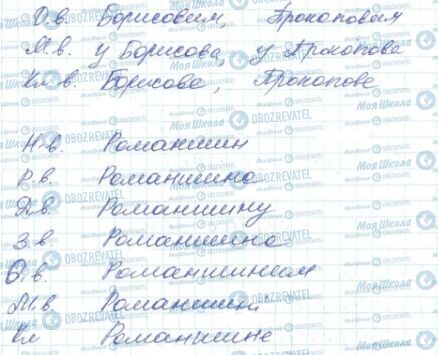 О.в. Борисовим, Прокоповим
М.в. у Борисова, у Прокопова
Кл.в. Борисове, Прокопове
Н.в. Романишин
Р.в. Романишина
Д.в. Романишину
З.в. Романишина
О.в. Романишиним
М.в. Романишині
Кл Романишине